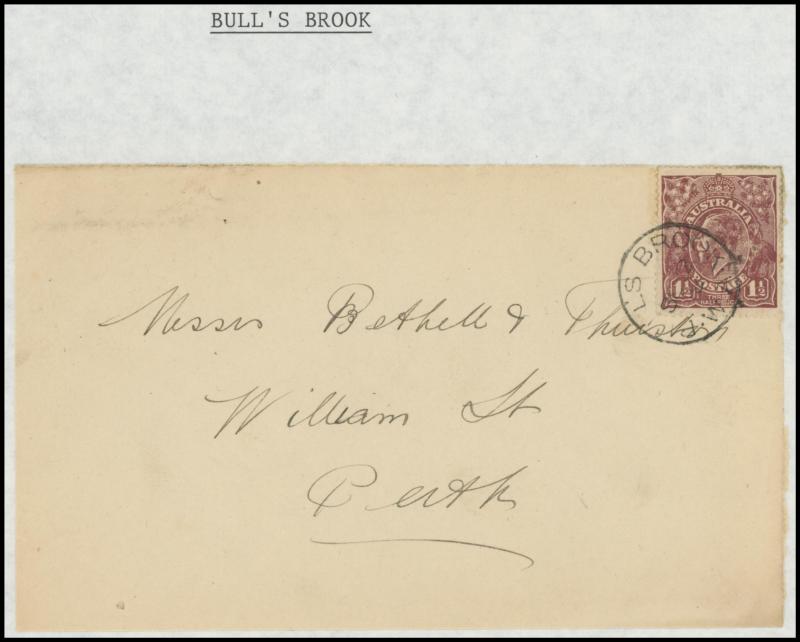 BULL'S BROOK
AUSTRALIA
POSTAGE
1½ THREE HALF PENCE 1½
L'S BROOK
W.A
Messrs Bethell & Thurston
William St
Perth